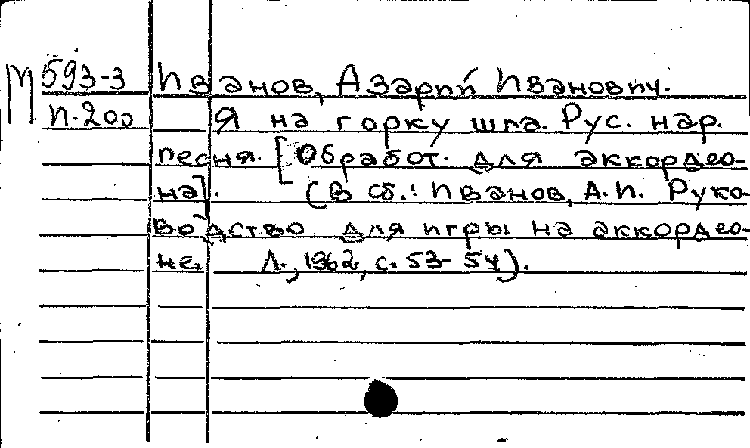 М 593-3 Иванов, Азарий Иванович.
И-200 Я на горку шла. Рус. нар.
песня. [Обработ. для аккордео-
на]. (В сб.: Иванов, А.И. Руко-
водство для игры на аккордео-
не. Л., 1962, с. 53-54).